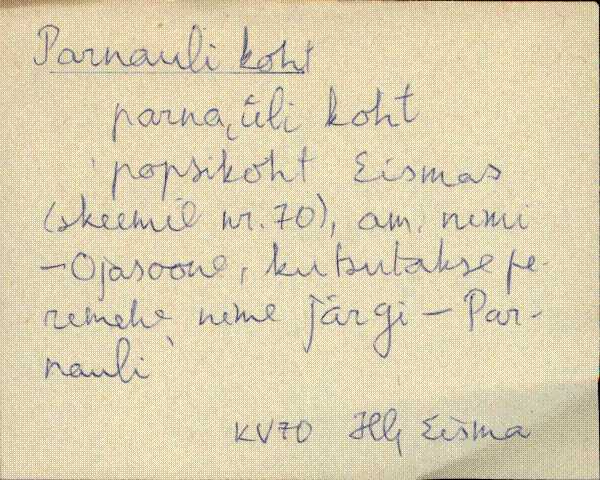 Parnauli koht
parna,üli koht
popsikoht Eismas
(skeemil nr. 70), am. nimi
-Ojasoone, kutsutakse pe-
remehe nime järgi - Par-
nauli
KV70 Hlj Eisma